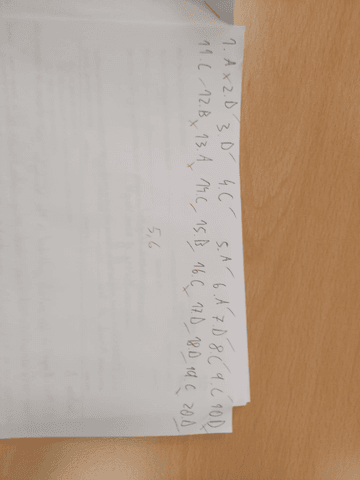 1. A x 2. D 3. D 4. C 5. A 6. A 7. D 8 C 9. C 10 D
11. C 12. B x 13 A x 14 C 15. B 16 C 17 D 18 D 19 C 20 D
5,6